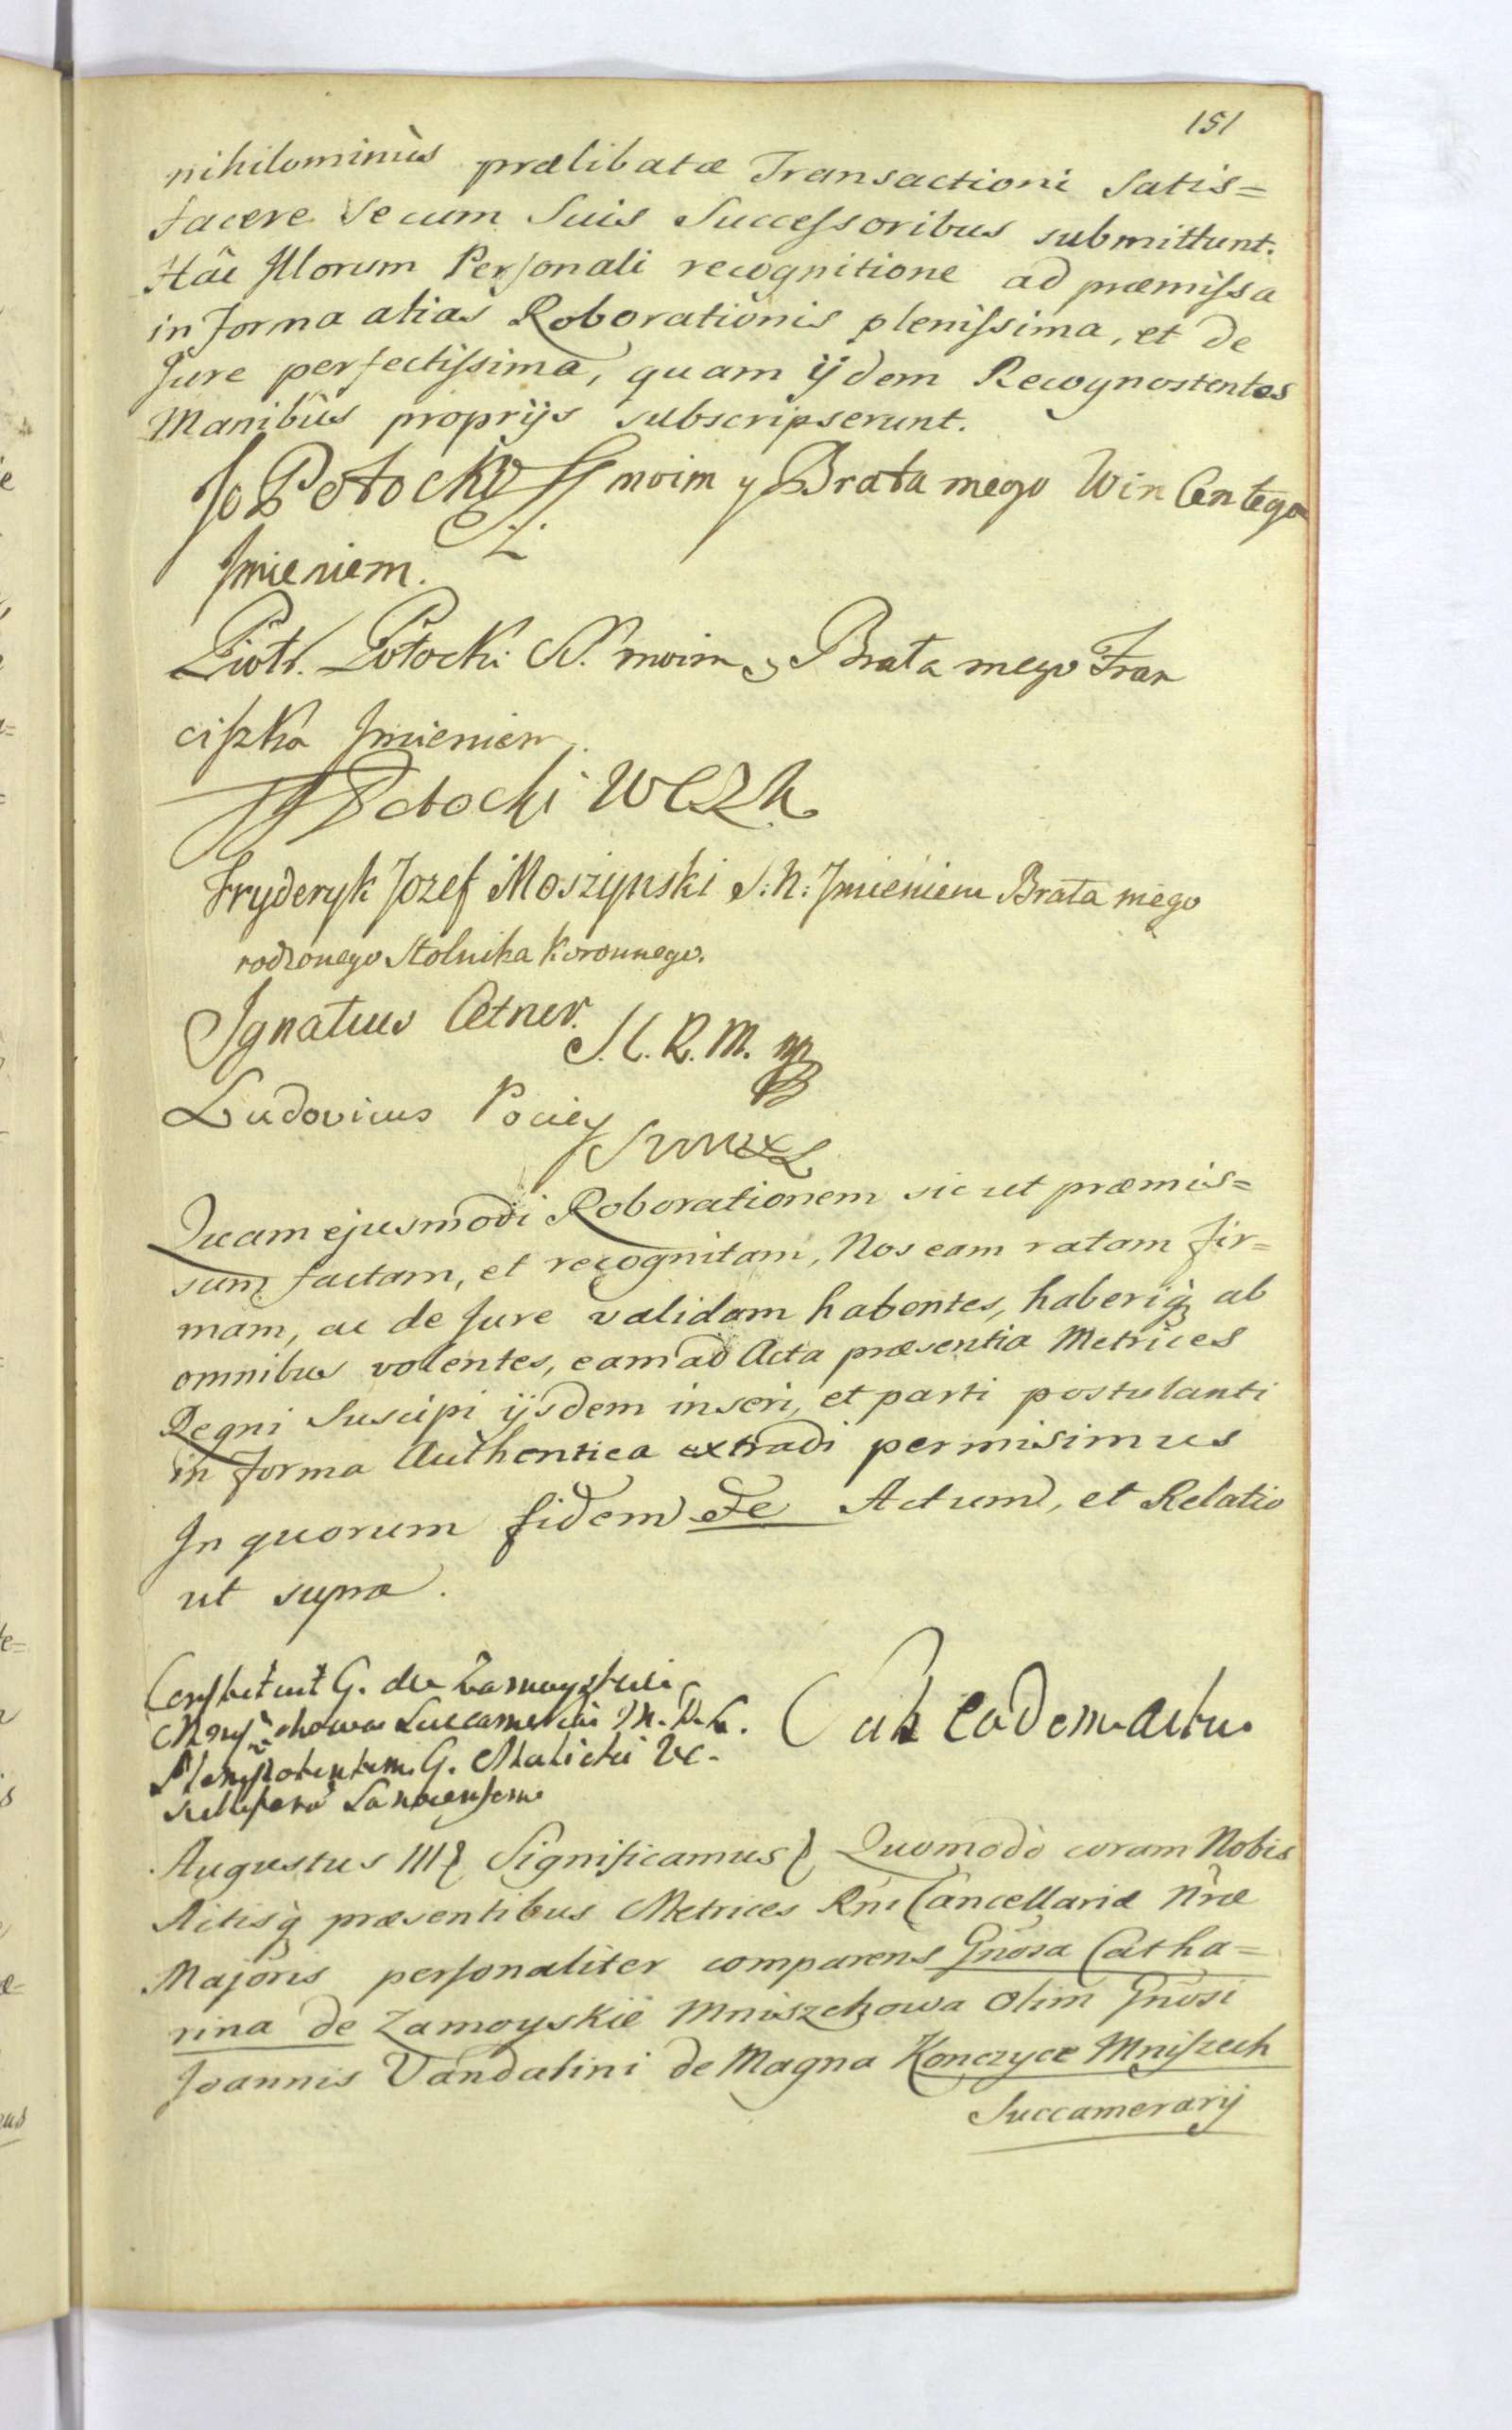 151
nihilominùs prælibatæ Transactioni Satis=
facere Se cum Suis Successoribus submittunt.
Hâc Illorum Personali recognitione ad præmissa
in forma alias Roborationis plenissima, et de
Jure perfectissima, quam ijdem Recognoscentes
Manibùs proprijs subscripserunt.
Potocki moim y Brata mego Wincentego
Jmieniem.
Piotr. Potocki moim y Brata mego Fran
ciszka Jmieniem
Potocki
Fryderyk Jozef Moszynski S: N: Jmieniem Brata mego
rodzonego Stolnika Koronnego.
Ignatius Cetner. S. C. R. M. mp
Ludovicus Pociey
Quam ejusmodi Roborationem sic ut præmis=
sum factam, et recognitam, Nos eam ratam fir=
mam, ac de Jure validam habentes, haberiq̀ ab
omnibus volentes, eam ad Acta præsentia Metrices
Regni Suscipi ijsdem inseri, et parti postulanti
in forma Authentica extradi permisimus
In quorum fidem Actum, et Relatio
ut supra.
Constituit G. de Zamoyskie
Succameraria M. D. L.
Plenipotentem G.
Sub eodem actu.
Augustus III Significamus Quomodò coram Nobis
Actisq̀ præsentibus Metrices Rni Cancellariæ Nræ
Majoris personaliter comparens Gnosa Catha=
rina de Zamoyskie Mniszchowa olim Gnosi
Joannis Vandalini de Magna Konczyce Mniszech
Succamerarij